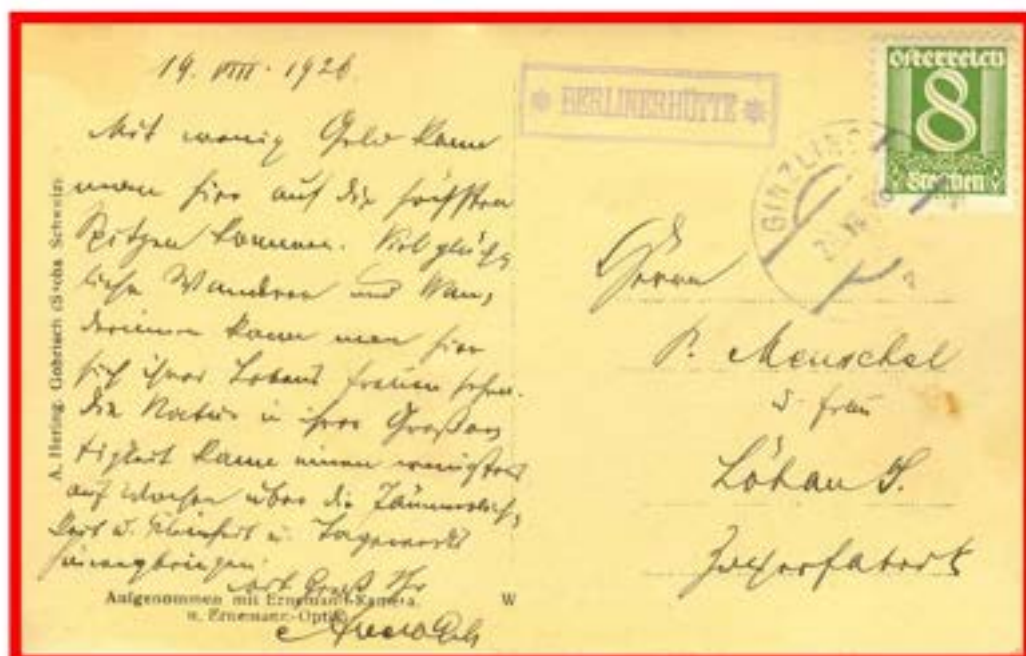 19. VIII. 1926
Mit wenig Geld kann
man hier auf die höchsten
Spitzen kommen. Viel glück,
liche Wanderer und Wan,
derinnen kann man hier
sich ihres Lebens freuen sehn.
Die Natur in ihrer Großar
tigkeit kann einen wenigstens
auf Wochen über die Jämmerlich,
keit u. Kleinheit u. Tagewerks
hinwegbringen.
Mit Gruß Ihr
A. Hering, Gohrisch (Sächs Schweiz)
Aufgenommen mit Ernemann-Kamera
u. Ernemann-Optik
W
* BERLINERHÜTTE *
Österreich
8
Groschen
GINZLING
Herrn
P. Menschel
u. Frau
Löbau S.